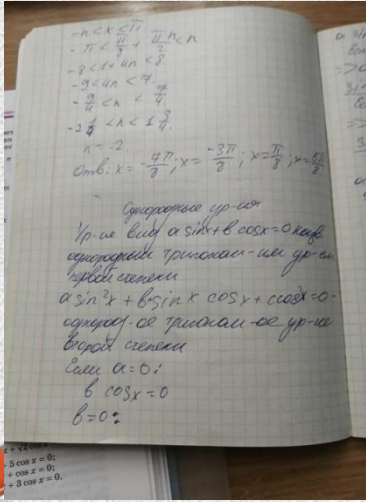 -π < x < π
-π < π/8 + π/2 n < π
-8 < 1 + 4n < 8
-9 < 4n < 7.
-9/4 < n < 7/4.
-2 1/4 < n < 1 3/4.
n = -2
Отв: x = -7π/8; x = -3π/8; x = π/8; x = 5π/8
Однородные ур-ия
Ур-ие вида a sinx + b cosx = 0 назыв
однородным тригоном-им ур-ем
первой степени
a sin²x + b sinx cosx + c cos²x = 0 -
однород-ое тригоном-ое ур-ие
второй степени
Если a = 0:
b cosx = 0
b = 0:
- 5 cos x = 0;
+ cos x = 0;
+ 3 cos x = 0.